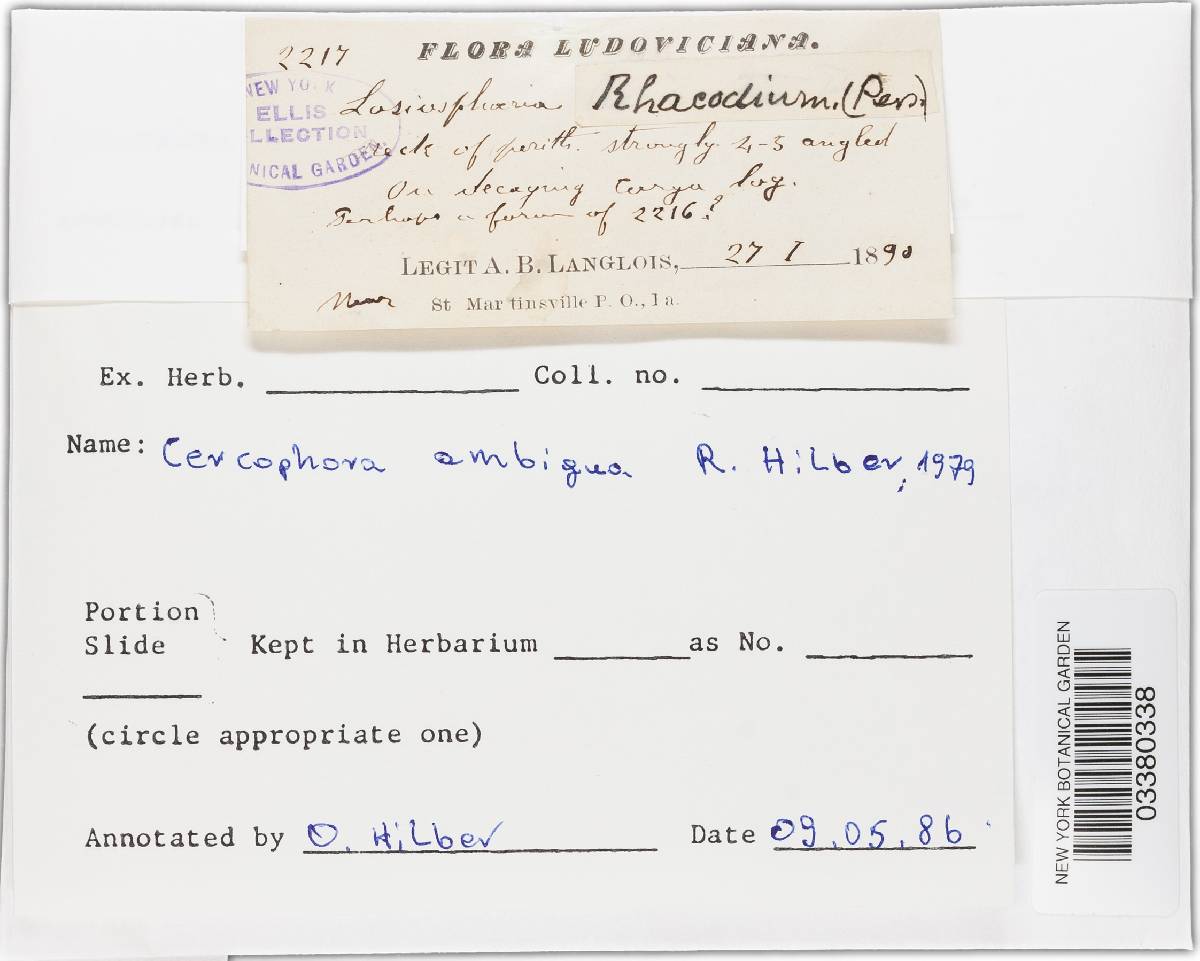 2217 FLORA LUDOVICIANA.
NEW YORK
ELLIS
LLECTION
NICAL GARDEN.
Lasiosphæria Rhacodium. (Pers.)
neck of perith. strongly 4-5 angled
On decaying Carya log.
Perhaps a form of 2216?
LEGIT A. B. LANGLOIS, 27 I 1890
Near St Martinsville P. O., La.
Ex. Herb. Coll. no.
Name: Cercophora ambigua R. Hilber, 1979
Portion
Slide Kept in Herbarium as No.
(circle appropriate one)
Annotated by O. Hilber Date 09.05.86
NEW YORK BOTANICAL GARDEN
03380338